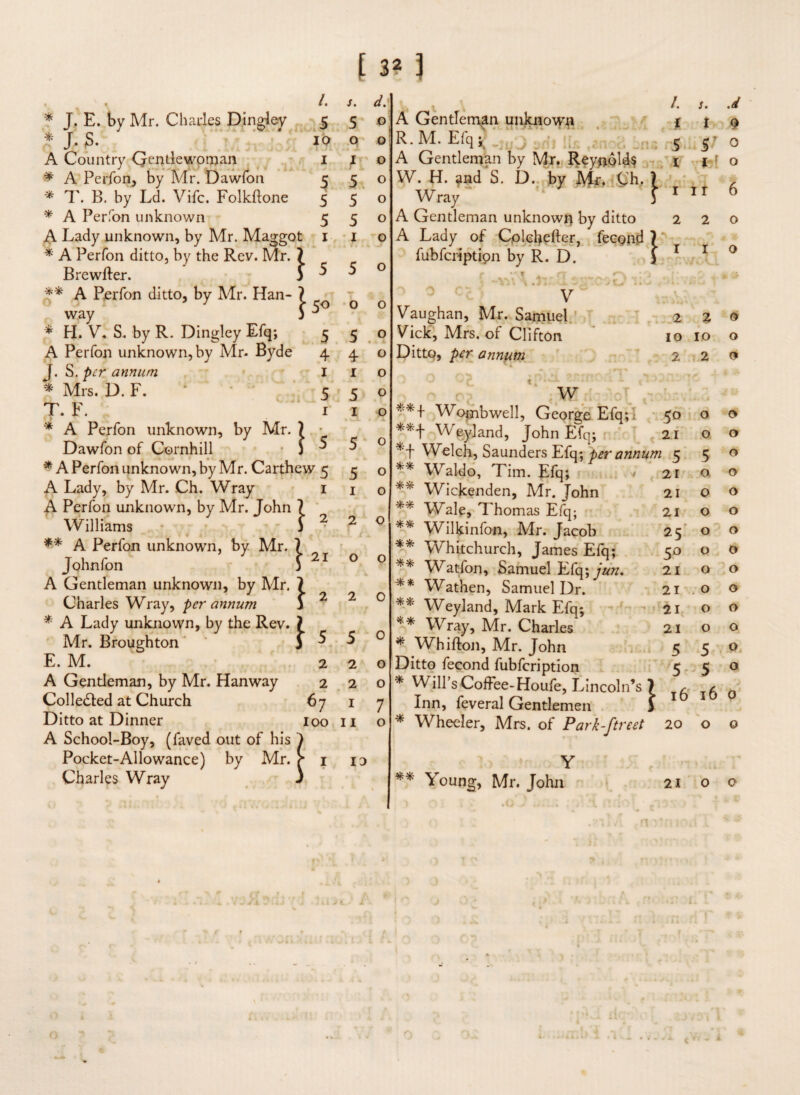 [ 32 ]
l. s. d.
* J. E. by Mr. Charles Dingley 5 5 0
* J. S. 10 0 0
A Country Gentlewoman 1 1 0
* A Perſon, by Mr. Dawſon 5 5 0
* T. B. by Ld. Viſc. Folkſtone 5 5 0
* A Perſon unknown 5 5 0
A Lady unknown, by Mr. Maggot 1 1 0
* A Perſon ditto, by the Rev. Mr. }
Brewſter. 5 5 0
** A Perſon ditto, by Mr. Han- }
way 50 0 0
* H. V. S. by R. Dingley Eſq; 5 5 0
A Perſon unknown, by Mr. Byde 4 4 0
J. S. per annum 1 1 0
* Mrs. D. F. 5 5 0
T. F. 1 1 0
* A Perſon unknown, by Mr. }
Dawſon of Cornhill 5 5 0
* A Perſon unknown, by Mr. Carthew 5 5 0
A Lady, by Mr. Ch. Wray 1 1 0
A Perſon unknown, by Mr. John }
Williams 2 2 0
** A Perſon unknown, by Mr. }
Johnſon 21 0 0
A Gentleman unknown, by Mr. }
Charles Wray, per annum 2 2 0
* A Lady unknown, by the Rev. }
Mr. Broughton 5 5 0
E. M. 2 2 0
A Gentleman, by Mr. Hanway 2 2 0
Collected at Church 67 1 7
Ditto at Dinner 100 11 0
A School-Boy, (ſaved out of his }
Pocket-Allowance) by Mr. 1 10
Charles Wray
l. s. .d
A Gentleman unknown 1 1 0
R. M. Eſq; 5 5 0
A Gentleman by Mr. Reynolds 1 1 0
W. H. and S. D. by Mr. Ch. }
Wray 1 11 6
A Gentleman unknown by ditto 2 2 0
A Lady of Colcheſter, ſecond }
ſubſcription by R. D. 1 1 0
V
Vaughan, Mr. Samuel 2 2 0
Vick, Mrs. of Clifton 10 10 0
Ditto, per annum 2 2 0
W
**† Wombwell, George Eſq; 50 0 0
**† Weyland, John Eſq; 21 0 0
*† Welch, Saunders Eſq; per annum 5 5 0
** Waldo, Tim. Eſq; 21 0 0
** Wickenden, Mr. John 21 0 0
** Wale, Thomas Eſq; 21 0 0
** Wilkinſon, Mr. Jacob 25 0 0
** Whitchurch, James Eſq; 50 0 0
** Watſon, Samuel Eſq; jun. 21 0 0
** Wathen, Samuel Dr. 21 0 0
** Weyland, Mark Eſq; 21 0 0
** Wray, Mr. Charles 21 0 0
* Whiſton, Mr. John 5 5 0
Ditto ſecond ſubſcription 5 5 0
* Will's Coffee-Houſe, Lincoln's }
Inn, ſeveral Gentlemen 16 16 0
* Wheeler, Mrs. of Park-ſtreet 20 0 0
Y
** Young, Mr. John 21 0 0